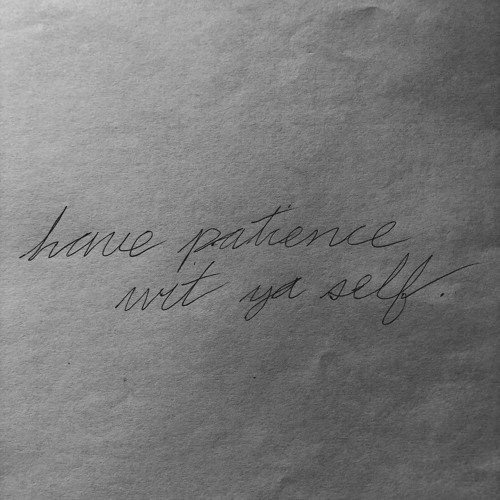 have patience
wit ya self.